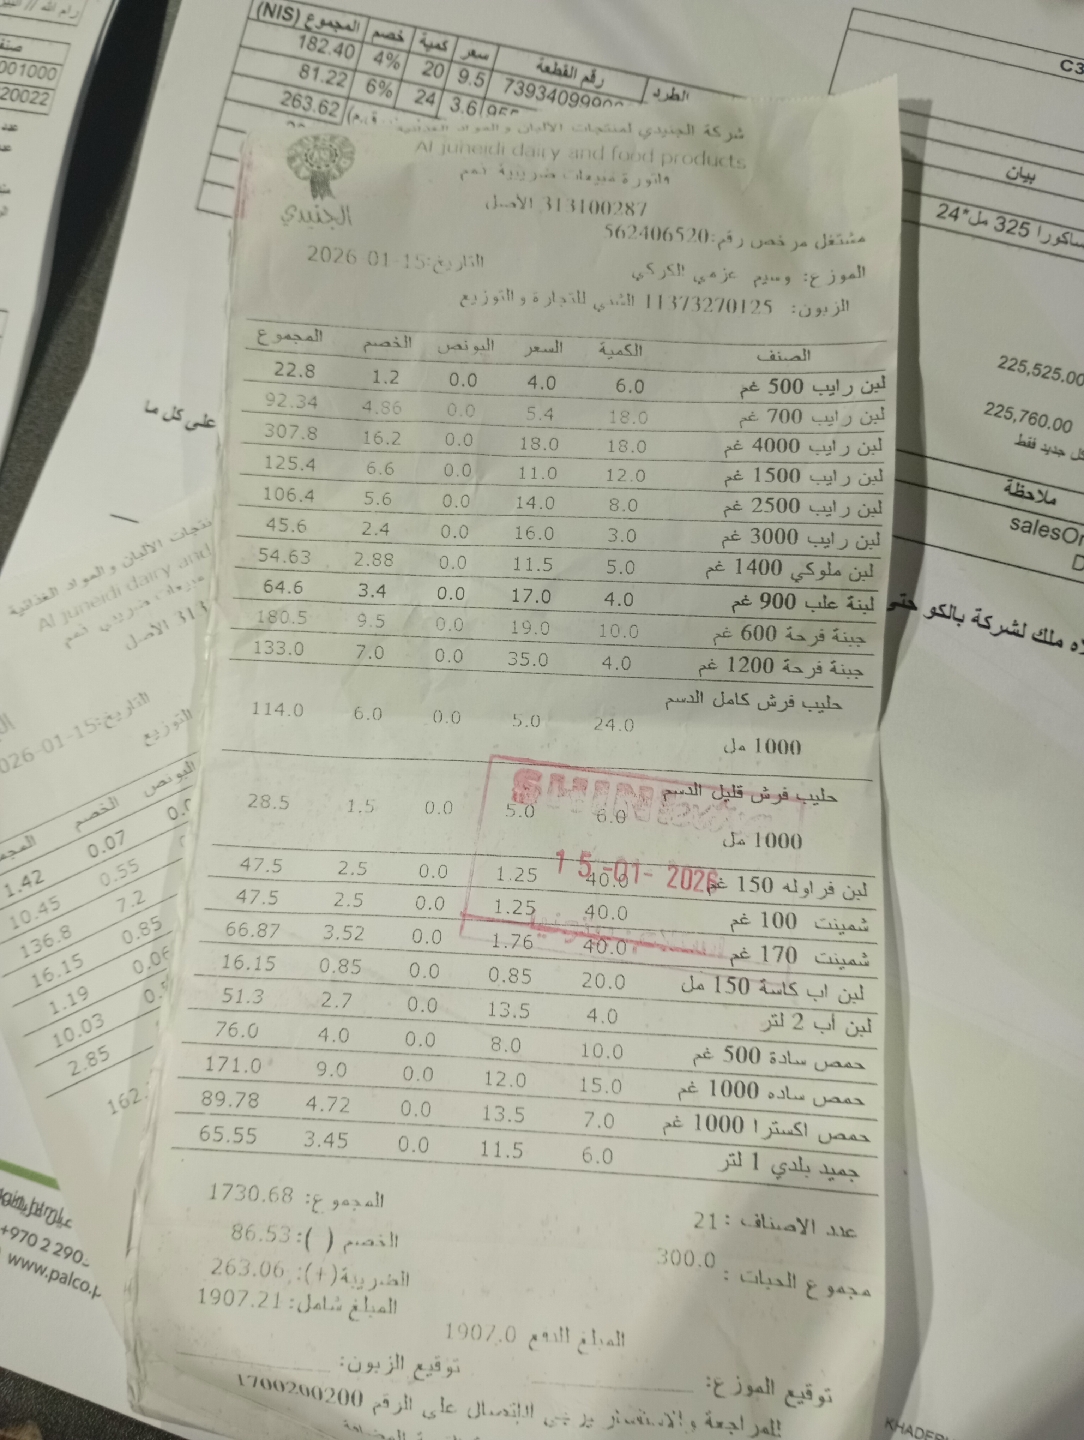 المجموع (NIS) خصم كمية سعر رقم القطعة الطرد
182.40 4% 20 9.5
81.22 6% 24 3.6
263.62
C3
بيان
325 مل*24
225,525.00
225,760.00
كل جديد فقط
ملاحظة
على كل ما
ملك لشركة بالكو حتى
شركة الجنيدي لمنتجات الألبان و المواد الغذائية
Al juneidi dairy and food products
فاتورة مبيعات ضريبية نعم
313100287 الأصل
الجنيدي
مشتغل مرخص رقم:562406520
الموزع: وسيم عزمي الكركي التاريخ:15-01-2026
الزبون: 11373270125 الشني للتجارة و التوزيع
الصنف الكمية السعر البونص الخصم المجموع
لبن رايب 500 غم 6.0 4.0 0.0 1.2 22.8
لبن رايب 700 غم 18.0 5.4 0.0 4.86 92.34
لبن رايب 4000 غم 18.0 18.0 0.0 16.2 307.8
لبن رايب 1500 غم 12.0 11.0 0.0 6.6 125.4
لبن رايب 2500 غم 8.0 14.0 0.0 5.6 106.4
لبن رايب 3000 غم 3.0 16.0 0.0 2.4 45.6
لبن ملوكي 1400 غم 5.0 11.5 0.0 2.88 54.63
لبنة علب 900 غم 4.0 17.0 0.0 3.4 64.6
جبنة فرحة 600 غم 10.0 19.0 0.0 9.5 180.5
جبنة فرحة 1200 غم 4.0 35.0 0.0 7.0 133.0
حليب فرش كامل الدسم
1000 مل 24.0 5.0 0.0 6.0 114.0
حليب فرش قليل الدسم
1000 مل 6.0 5.0 0.0 1.5 28.5
15-01-2026
لبن فراوله 150 غم 40.0 1.25 0.0 2.5 47.5
شمينت 100 غم 40.0 1.25 0.0 2.5 47.5
شمينت 170 غم 40.0 1.76 0.0 3.52 66.87
لبن اب كاسة 150 مل 20.0 0.85 0.0 0.85 16.15
لبن أب 2 لتر 4.0 13.5 0.0 2.7 51.3
حمص سادة 500 غم 10.0 8.0 0.0 4.0 76.0
حمص ساده 1000 غم 15.0 12.0 0.0 9.0 171.0
حمص اكسترا 1000 غم 7.0 13.5 0.0 4.72 89.78
جميد بلدي 1 لتر 6.0 11.5 0.0 3.45 65.55
عدد الاصناف : 21 المجموع: 1730.68
مجموع الحبات : 300.0 الخصم ( ): 86.53
الضريبة(+): 263.06
المبلغ شامل: 1907.21
المبلغ للدفع 1907.0
توقيع الموزع: توقيع الزبون:
للمراجعة والاستفسار يرجى الاتصال على الرقم 1700200200
منتجات الألبان و المواد الغذائية
Al juneidi dairy and
مبيعات ضريبي نعم
313 الأصل
التوزيع
البونص الخصم
0.07 1.42
0.55 10.45
7.2 136.8
0.85 16.15
0.06 1.19
10.03
2.85
162.
+970 2 290
www.palco.p